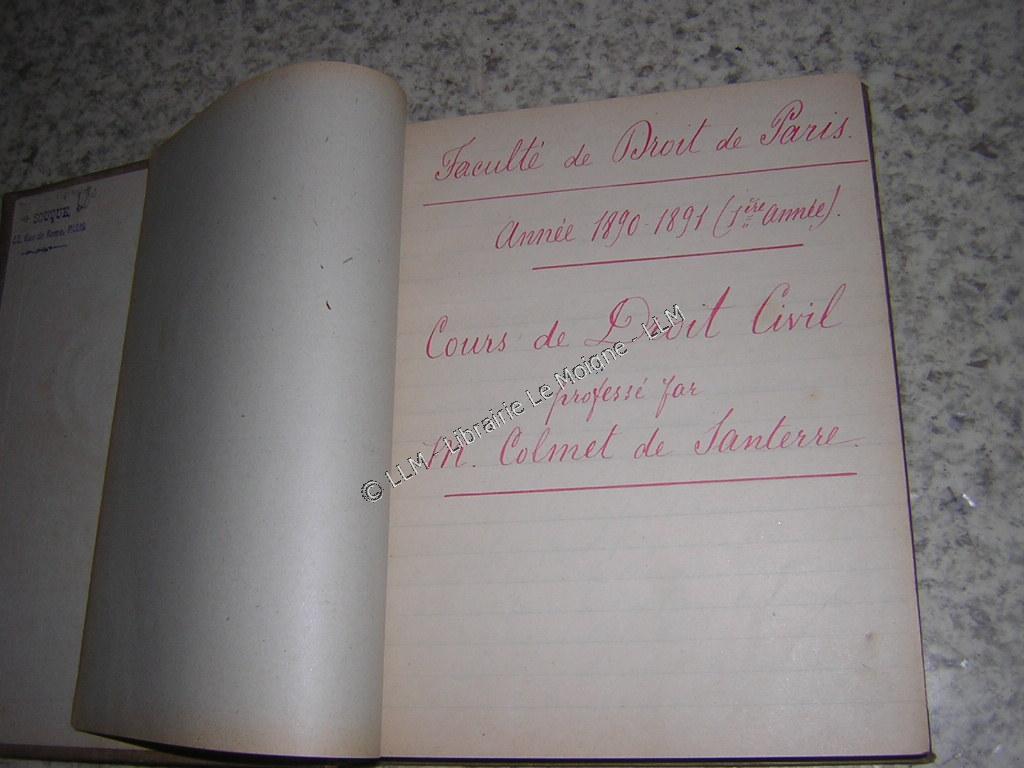 SOUQUE
Faculté de Droit de Paris.
Année 1890-1891 (1ère année).
Cours de Droit Civil
professé par
M. Colmet de Santerre.
© LLM - Librairie Le Moigne - LLM